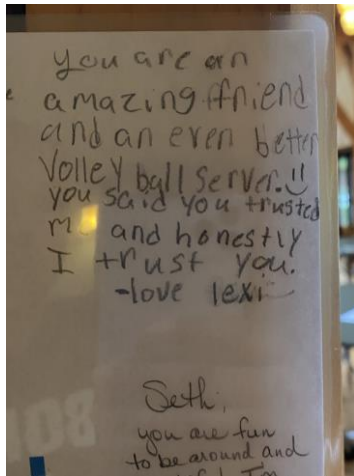 you are an
amazing ffriend
and an even better
Volley ball server. :)
you said you trusted
and honestly
I trust you.
-love lexi
Seth,
you are fun
to be around and
I'm